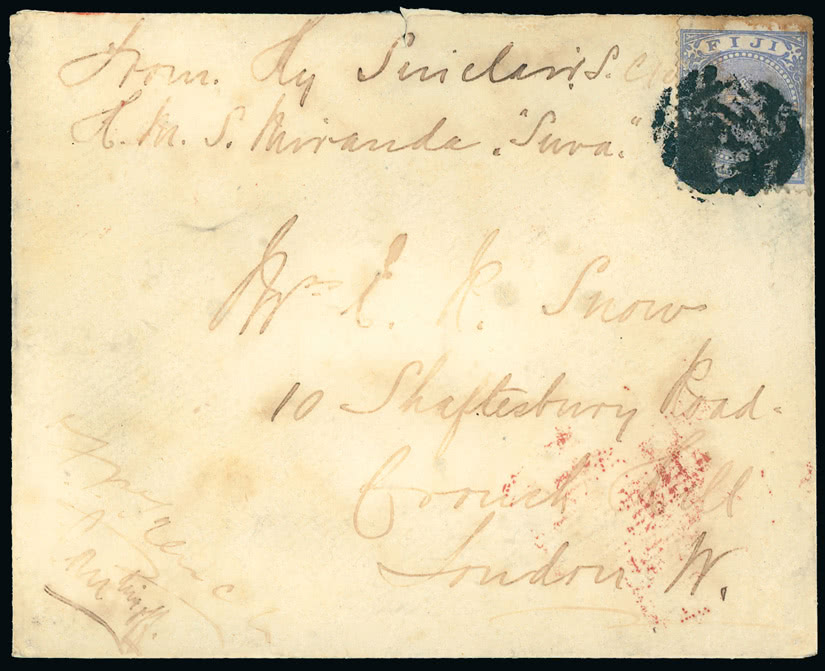 From. Hy Sinclair. S.
H. M. S. Miranda. "Suva."
FIJI
Mrs E. K. Snow
10 Shaftesbury Road.
Crouch Hill
London W.